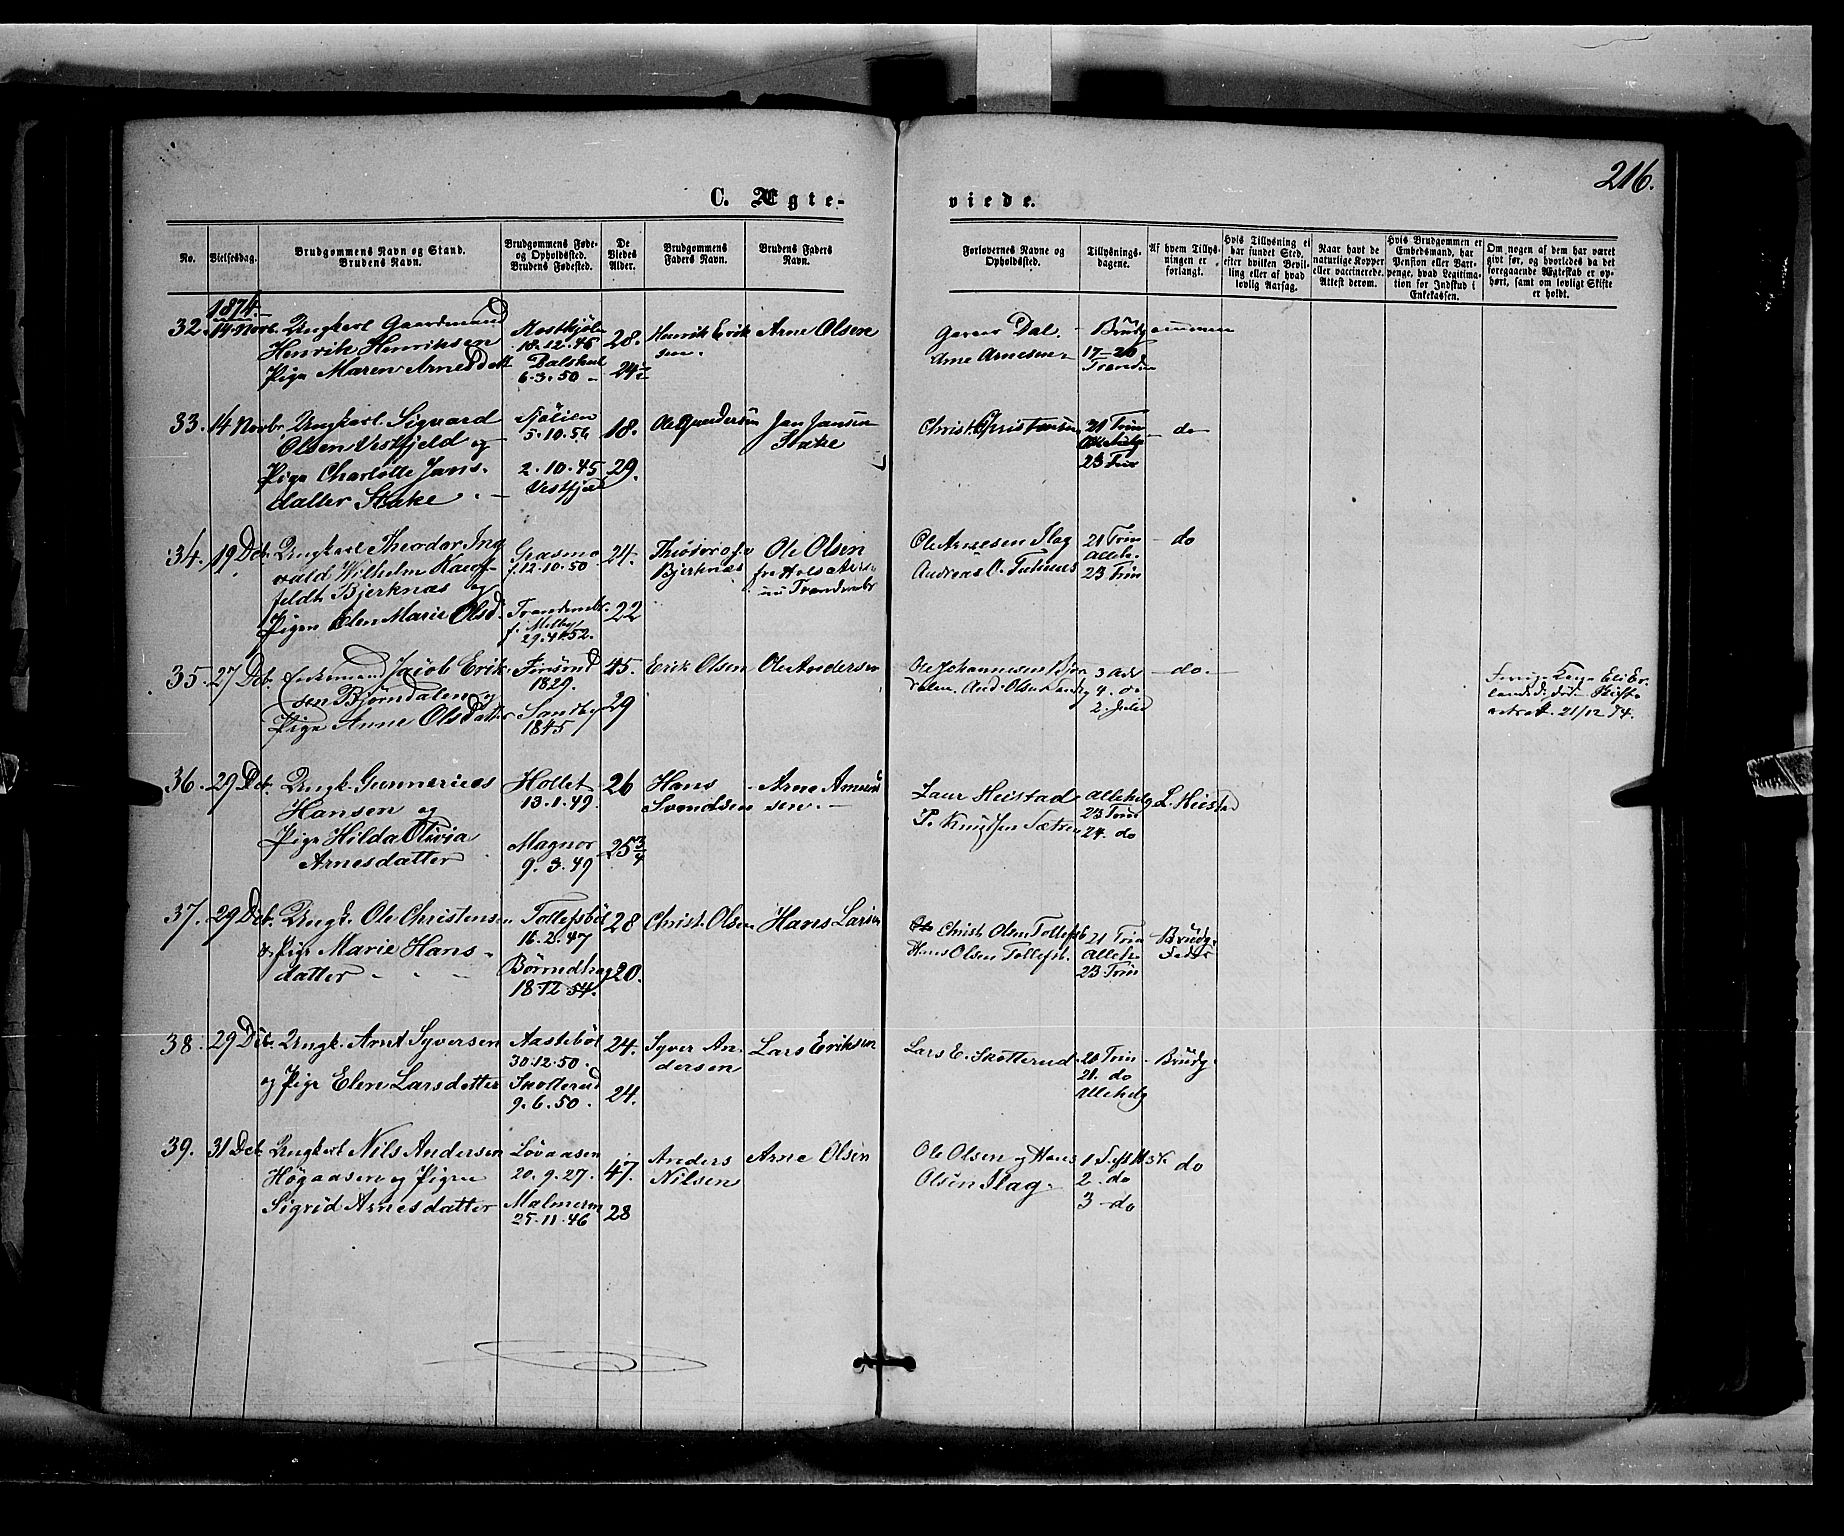 216.
C. Ægte- viede.
No.
Vielsesdag.
Brudgommens Navn og Stand.
Brudens Navn.
Brudgommens Føde-
og Opholdssted.
Brudens Fødested.
De
Viedes
Alder.
Brudgommens
Faders Navn.
Brudens Faders
Navn.
Forlovernes Navne og
Opholdssted.
Tillysnings-
dagene.
Af hvem Tillys-
ningen er
forlangt.
Hvis Tillysning ei
har fundet Sted,
efter hvilken Bevil-
ling eller af hvad
lovlig Aarsag.
Naar havt de
naturlige Kopper
eller vaccinerede.
Attest derom.
Hvis Brudgommen er
Embedsmand, har
Pension eller Var-
penge, hvad Legitima-
tion for Indskud i
Enkekassen.
Om nogen af dem har været
givt før, og hvorledes da det
foregaaende Ægteskab er op-
hørt, samt om lovligt Skifte
er holdt.
1874.
32. 14 Novb. Ungkarl Gaardmand
Henrik Henriksen
Pige Maren Arnesdatt
18.12.45
6.3.50
28.
24
Henrik Erik
sen.
Arne Olsen
Dal
Arne Arnesen
17-20
Brudgommen
33. 14 Novbr. Ungkarl Sigvard
Olsen Vestfjeld og
Pige Charlotte Jans-
datter Stake
5.10.56
2.10.45
Vestfjeld
18.
29.
Ole Gundersen
Jan Jansen
Stake
Christ. Christensen
21 Trin
Allehelg
23 Trin
do
34. 19 Dcb. Ungkarl Theodor Ing
vald Wilhelm
feldt Bjerknæs og
Pigen Elen Marie Olsd.
f. 12.10.50
f. Melby
29.4.52.
24.
22
Bjerknæs
Ole Olsen
Ole Arnesen Flag
Andreas O.
21 Trin
Alleh.
23 Trin
do
35. 27 Dcb. Enkemand Jacob Erik-
sen Bjørndalen og
Pige Anne Olsdatter
1829.
Sandby
1845
45.
29
Erik Olsen
Ole Andersen
Ole Johannesen Bjørn
dalen. And. Olsen Sandby
3 Adv
4. do
2. Juled
do.
21/12 74.
36. 29 Dcb. Ungk. Gunnerius
Hansen og
Pige Hilda Olivia
Arnesdatter
Hollet
13.1.49.
Magnor
9.3.49
26
25 3/4
Hans
Svendsen
Arne Amund
sen.
Laur Heistad
P. Knudsen Sætren
Allehelg
23 Trin
24. do
L. Heistad
37. 29 Dcb. Ungk. Ole Christensen
& Pige Marie Hans-
datter
Tollefsbøl
16.2.47
18.12 54.
28
20.
Christ. Olsen
Hans Larsen
Christ Olsen Tollefsb
Hans Olsen Tollefsb.
21 Trin
Alleh
23 Trin
Brudg.
38. 29 Dcb. Ungk. Arnt Syversen
og Pige Elen Larsdatter
Aastebøl
30.12.50.
Skotterud
9.6.50.
24.
24.
Syver An-
dersen
Lars Eriksen
Lars E. Skotterud
20 Trin
21. do
Allehelg
Brudg.
39. 31 Dcb. Ungkarl Nils Andersen
Høgaasen og Pigen
Sigrid Arnesdatter
Løvaasen
20.9.27.
Malmeren
25.11.46
47.
28
Anders
Nilsen
Arne Olsen
Ole Olsen og Hans
Olsen Flag.
2. do
3 do
do